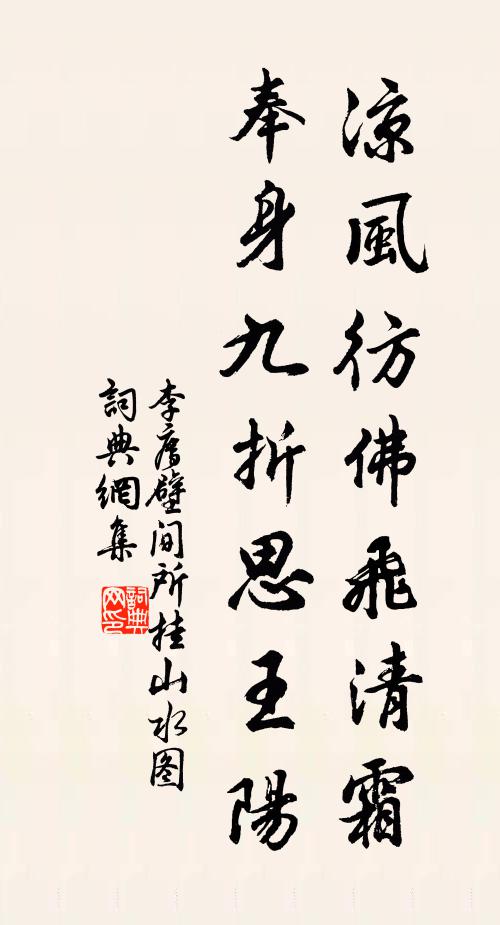 凉風彷彿飛清霜
奉身九折思王陽
李唐壁间所挂山水图
詞典網集
詞典网印